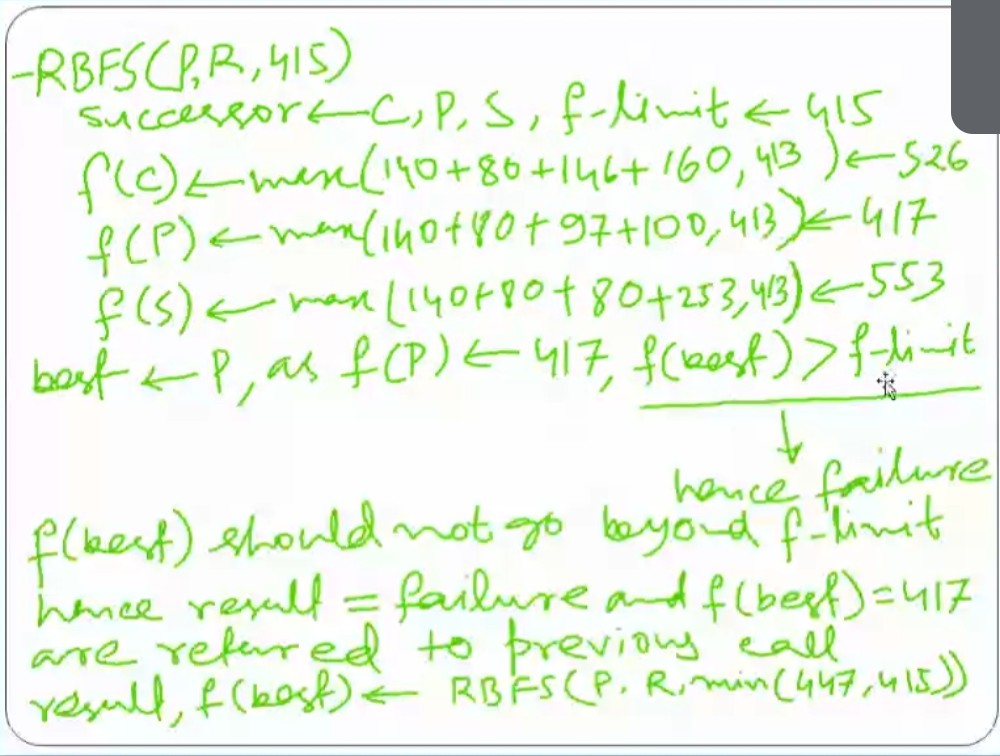 -RBFS(P,R,415)
successor ← C, P, S, f-limit ← 415
f(C) ← max(140+80+146+160, 413) ← 526
f(P) ← max(140+80+97+100, 413) ← 417
f(S) ← max(140+80+80+253,413) ← 553
best ← P, as f(P) ← 417, f(best) > f-limit
↓
hence failure
f(best) should not go beyond f-limit
hence result = failure and f(best)=417
are returned to previous call
result, f(best) ← RBFS(P. R, min(447,415))